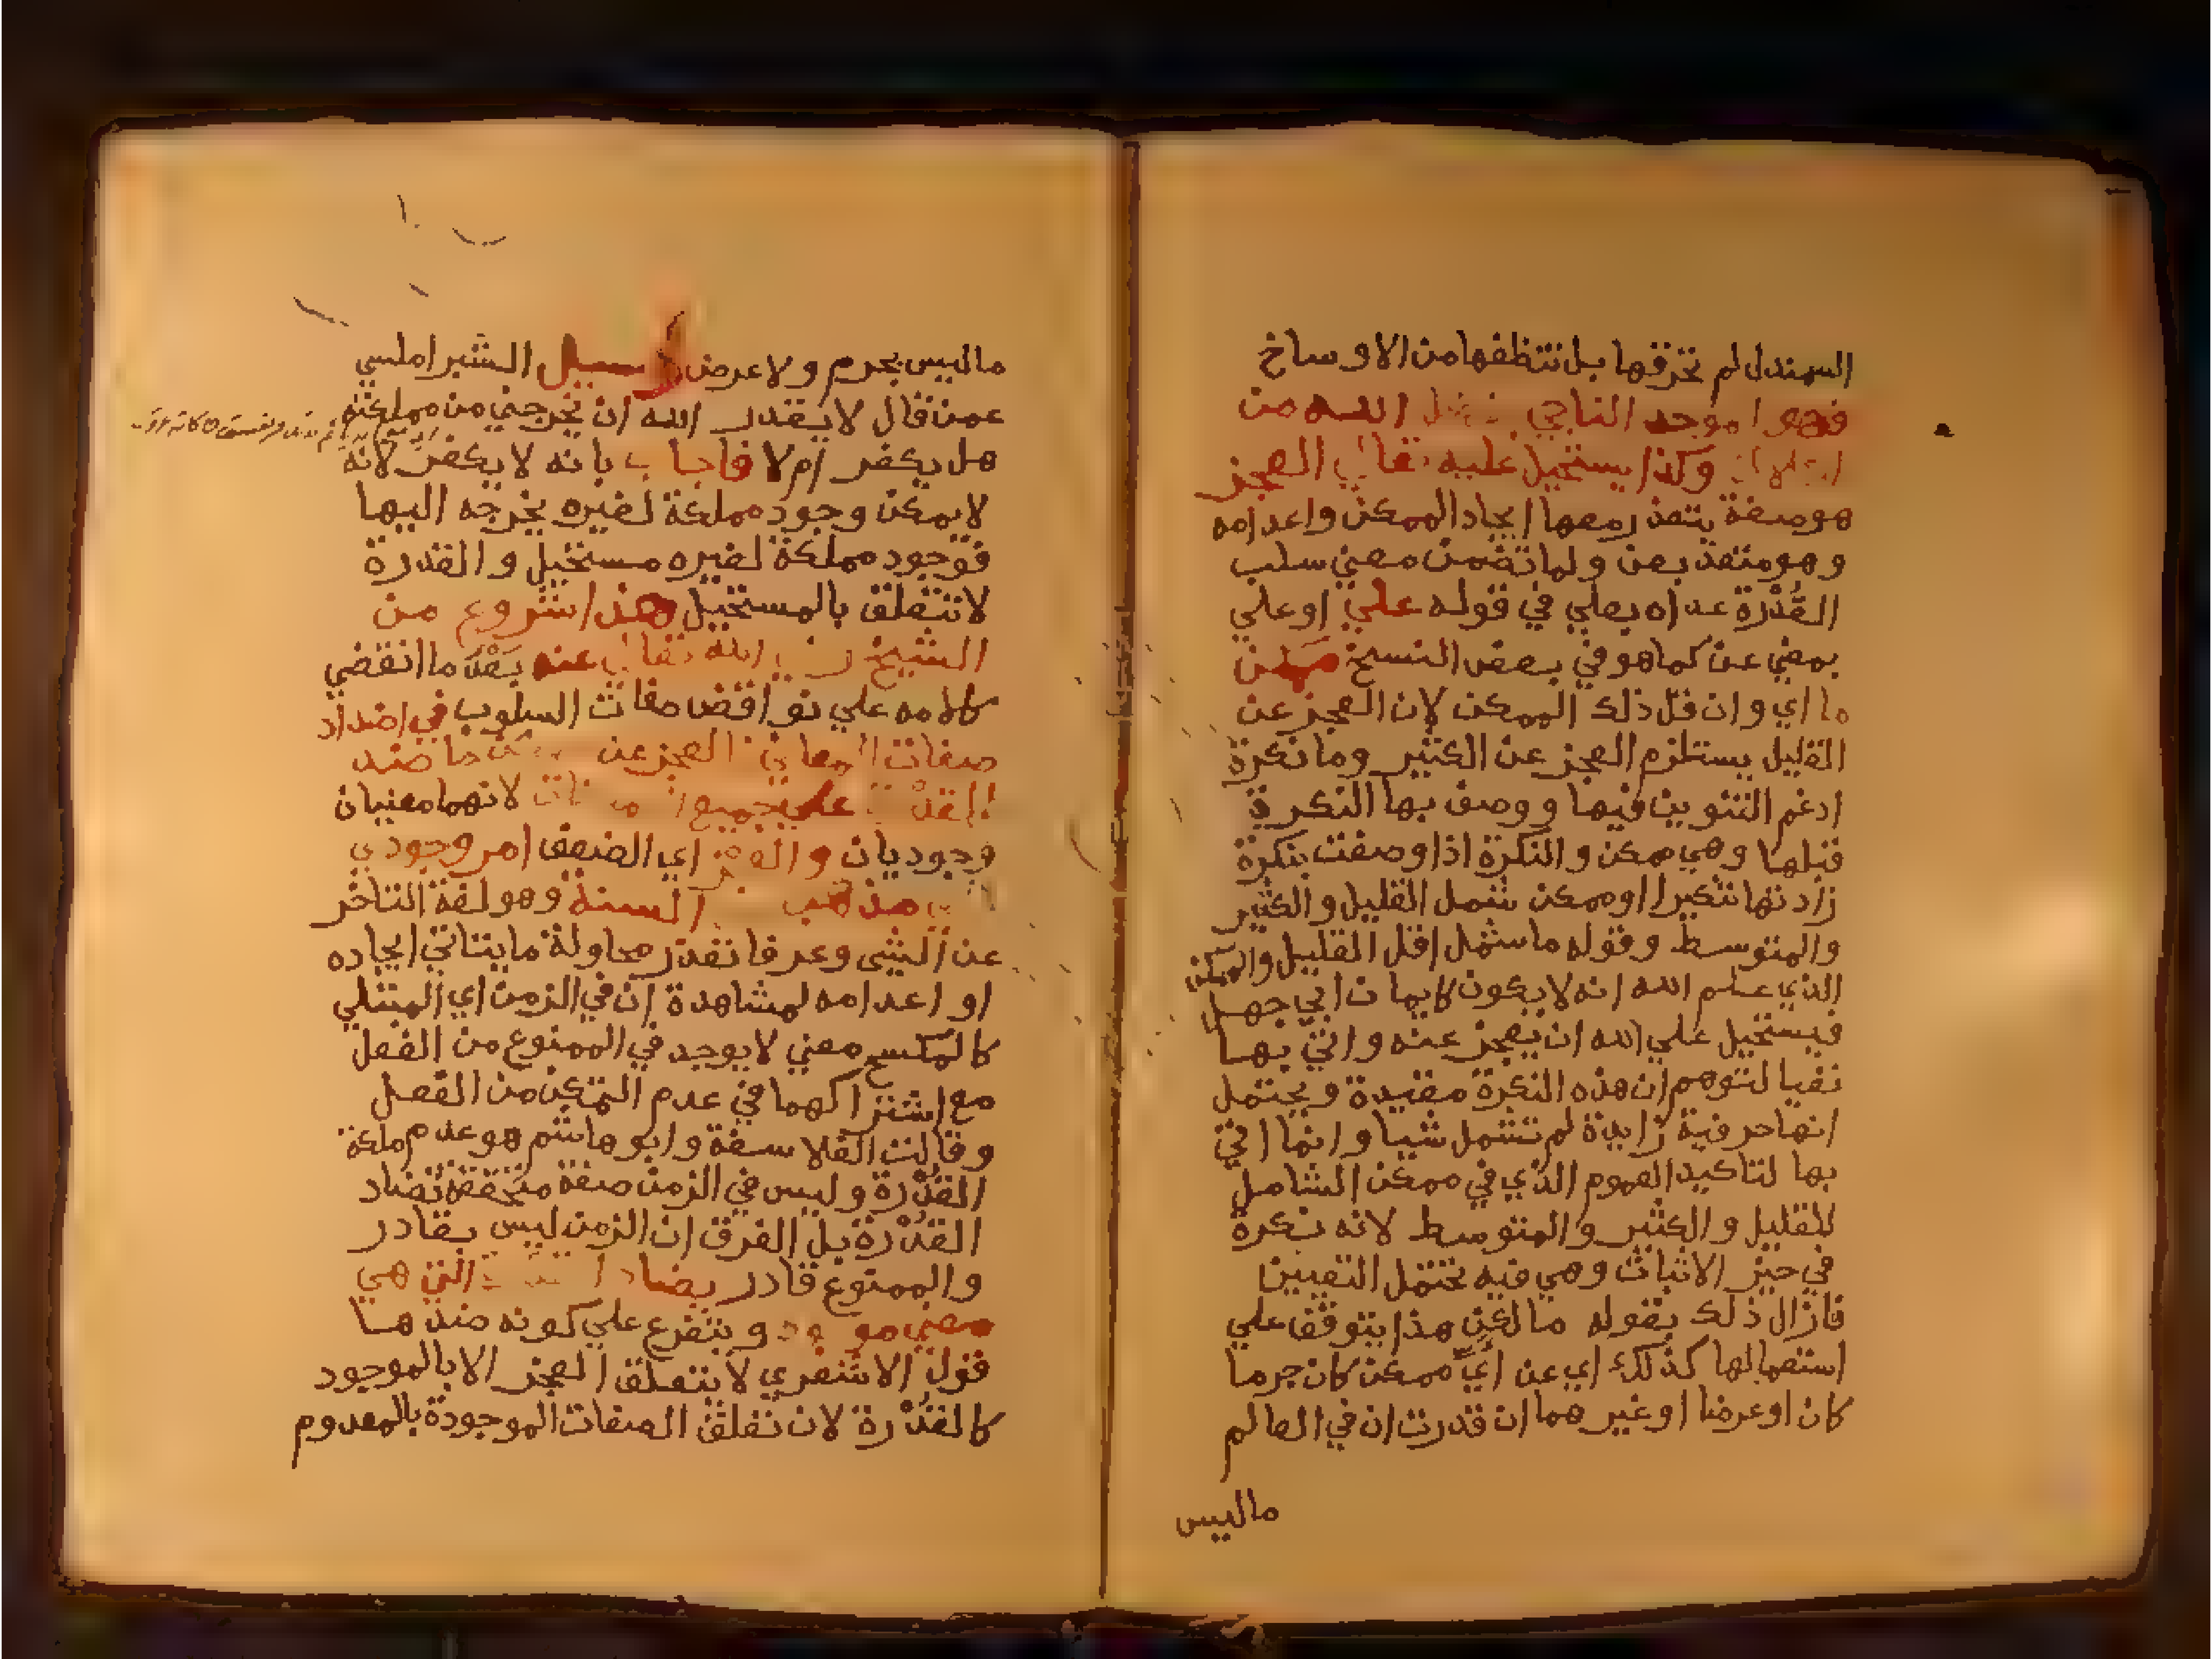 السمندل لم تحرقها بل تنظفها من الاوساخ
فهو اموجد الناجي الله من
وكذا يستحيل عليه تعالي العجز
هو صفة يتعذر معها ايجاد الممكن واعدامه
وهو متعد بعن ولما تضمن معني سلب
القُدْرة عداه بعلي في قوله علي او علي
بمعني عن كما هو في بعض النسخ ممكن
ما اي وان قل ذلك الممكن لان العجز عن
القليل يستلزم العجز عن الكثير وما نكرة
ادغم التنوين فيها ووصف بها النكرة
قبلها وهي ممكن والنكرة اذا وصفت بنكرة
زادتها تنكيرا او ممكن شمل القليل والكثير
والمتوسط وقوله ما شمل اقل القليل والممكن
الذي علم الله انه لا يكون كايمان ابي جهل
فيستحيل علي الله ان يعجز عنه واتي بها
نفيا لتوهم ان هذه النكرة مقيدة ويحتمل
انها حرفية زايدة لم تشمل شيا وانما اتي
بها لتاكيد العموم الذي في ممكن الشامل
للقليل والكثير والمتوسط لانه نكرة
في حيز الاثبات وهي فيه تحتمل التعيين
فازال ذلك بقوله ما لكن هذا يتوقف علي
استعمالها كذلك اي عن ايّ ممكن كان جرما
كان او عرضا او غيرهما ان قدرت ان في العالم
ماليس
ماليس بجرم ولا عرض وسيل الشبراملسي
عمن قال لا يقدر الله ان يخرجني من مملكته
هل يكفر ام لا فاجاب بانه لا يكفر لانه
لا يمكن وجود مملكة لغيره يخرجه اليها
فوجود مملكة لغيره مستحيل والقدرة
لا تتعلق بالمستحيل هذا شروع من
الشيخ رضي الله تعالي عنه بَعْدَ ما انقضي
كلامه علي نواقض صفات السلوب في اضداد
صفات المعاني العجز عن ممكن ما ضد
القدْرة علي جميع الممكنات لانهما معنيان
وجوديان والعجز اي الضعف امر وجودي
مذهب السنة وهو لغة التاخر
عن الشي وعرفا تعذر محاولة ما يتاتي ايجاده
او اعدامه لمشاهدة ان في الزمن اي المبتلي
كالمكسح معني لا يوجد في الممنوع من الفعل
مع اشتراكهما في عدم التمكن من الفعل
وقالت الفلاسفة وابو هاشم هو عدم ملكة
القُدْرة وليس في الزمن صفة متحققة تضاد
القدْرة بل الفرق ان الزمن ليس بقادر
والممنوع قادر يضاد القدرة التي هي
معني موجود ويتفرع علي كونه ضدها
قول الاشعري لا يتعلق العجز الا بالموجود
كالقدْرة لان تعلق الصفات الموجودة بالمعدوم